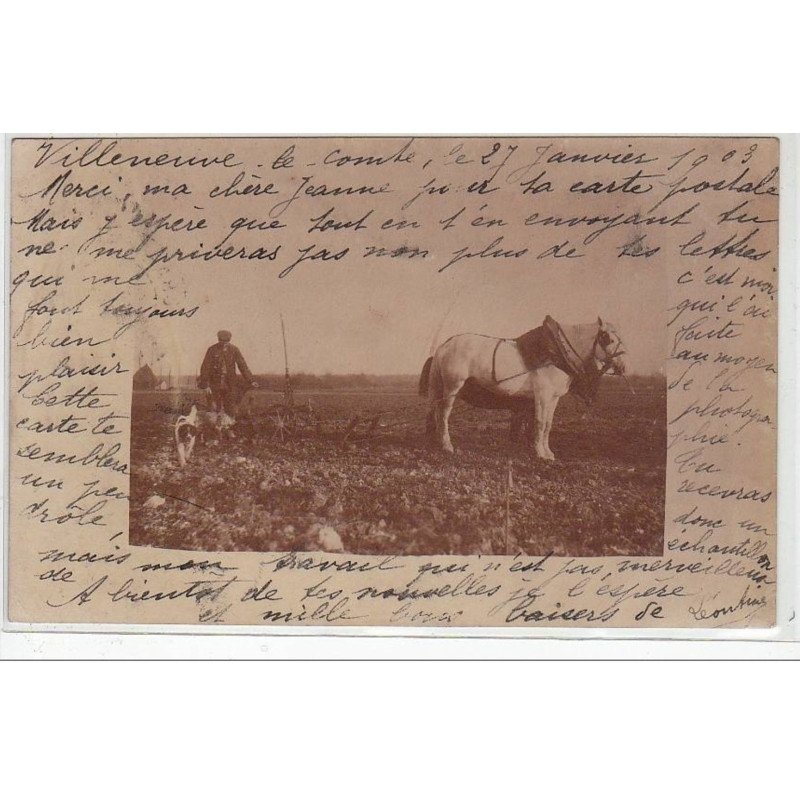 Villeneuve - le - comte, le 27 Janvier 1903
Merci, ma chère Jeanne pour ta carte postale
Mais j'espère que tout en t'en envoyant tu
ne me priveras pas non plus de tes lettres
qui me
font toujours
bien
plaisir
Cette
carte te
semblera
un peu
drôle
c'est moi
qui l'ai
faite
au moyen
de la
photogra-
phie.
Tu
recevras
donc un
échantillon
de
mais mon travail qui n'est pas merveilleux
A bientôt de tes nouvelles je l'espère
et mille bons baisers de Léontine